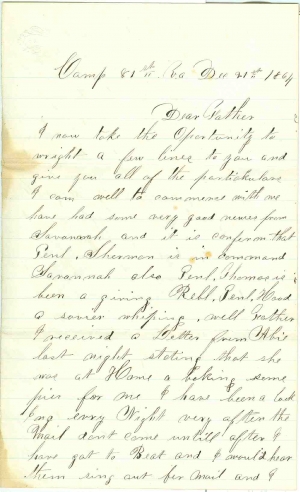 Camp 81st Pa Dec 21st 1864
Dear Father
I now take the Oportunity to
wright a few lines to you and
give you all of the particulars
I am well to commence with we
have had some very good news from
Savannah, and it is conferm that
Genl. Sherman is in command
Savannah also Genl. Thomas is
been a giving Rebl. Genl. Hood
a sovier whiping, well Father
I received a Letter from Abie
last night stating that she
was at Home a baking some
pies for me I have been a look
ing every Night very after the
Mail dont come untill after I
have got to Bead and I would hear
them sing out for Mail and I